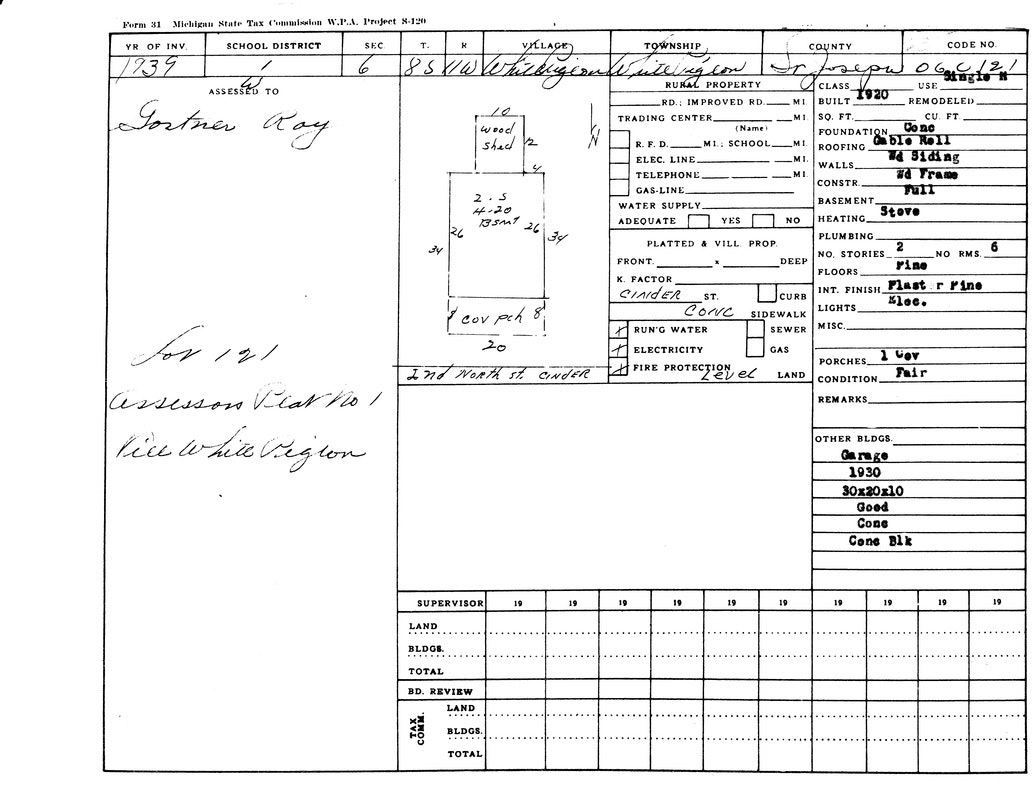 Form 31 Michigan State Tax Commission W.P.A. Project S-120
YR OF INV. SCHOOL DISTRICT SEC. T. R VILLAGE TOWNSHIP COUNTY CODE NO.
1939 1 6 8S 11W White Pigeon White Pigeon St Joseph OGC 121
W
ASSESSED TO
Gortner Roy
Lot 121
Assessors Plat No 1
Vill White Pigeon
10
Wood
shed
12
4
N
2. S
4-20
Bsmt
26 26
34 34
8 cov pch 8
20
2nd North st. CINDER
RURAL PROPERTY
RD.; IMPROVED RD. MI.
TRADING CENTER MI.
(Name)
R. F. D. MI.; SCHOOL MI.
ELEC. LINE MI.
TELEPHONE MI.
GAS-LINE
WATER SUPPLY
ADEQUATE YES NO
PLATTED & VILL. PROP.
FRONT. x DEEP
K. FACTOR
CINDER ST. CURB
CONC SIDEWALK
RUN'G WATER SEWER
ELECTRICITY GAS
FIRE PROTECTION
Level LAND
CLASS USE Single H
BUILT 1920 REMODELED
SQ. FT. CU. FT.
FOUNDATION Conc
ROOFING Gable Roll
WALLS Wd Siding
CONSTR. Wd Frame
BASEMENT Full
HEATING Stove
PLUMBING
NO. STORIES 2 NO RMS. 6
FLOORS Pine
INT. FINISH Plaster Pine
LIGHTS Elec.
MISC.
PORCHES 1 Cov
CONDITION Fair
REMARKS
OTHER BLDGS.
Garage
1930
30x20x10
Good
Conc
Conc Blk
SUPERVISOR 19 19 19 19 19 19 19 19 19 19
LAND
BLDGS.
TOTAL
BD. REVIEW
TAX COMM.
LAND
BLDGS.
TOTAL